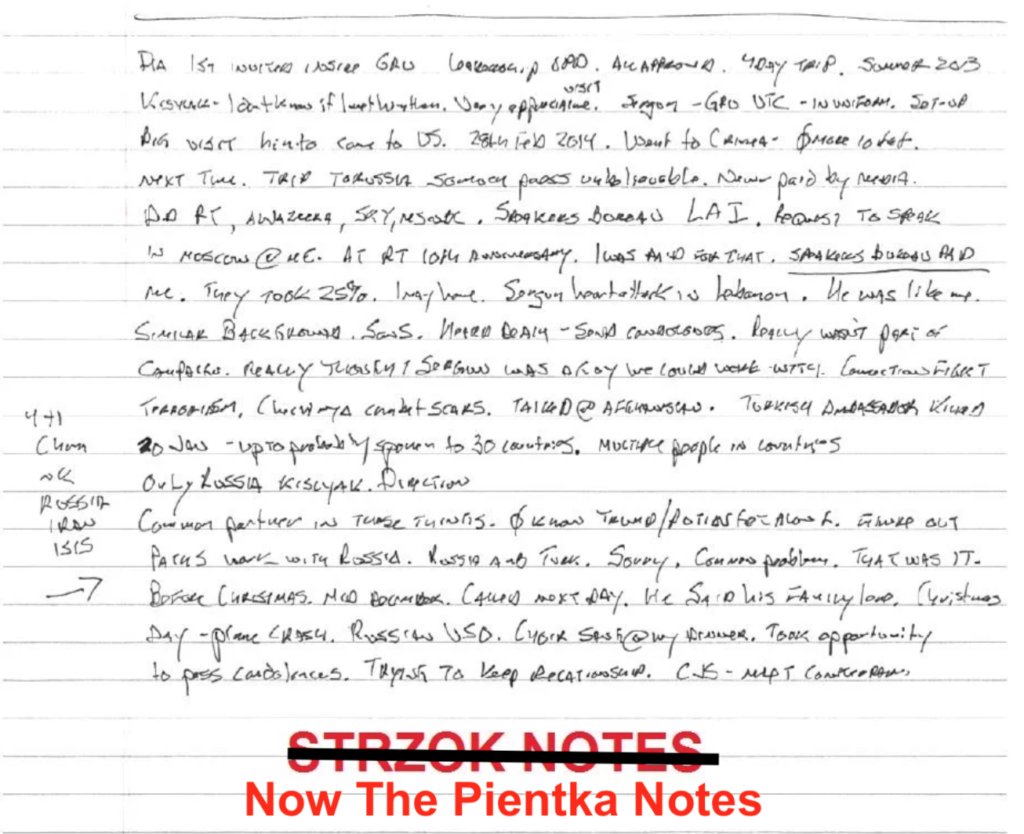 DIA 1st invited inside GRU Leadership Dev. All approved. 4 day trip. Summer 2013
visit
Kislyak - I don't know if I met w/ then. Very appreciative. Sergun - GRU UTC - in uniform. Set-up
Big visit him to come to US. 28th Feb 2014. Went to Crimea - Ø more to
Next time. Trip to Russia press unbelievable. Never paid by media.
Did RT, Al Jazeera, SKY, MSNBC. Speakers Bureau LAI. Request to speak
in Moscow @ ME. At RT 10th Anniversary. I was paid for that. Speakers Bureau Paid
me. They took 25%. I may have. Sergun heart attack in Lebanon. He was like me.
Similar Background. Sons. Heard Death - Send condolences. Really wasn't part of
Campaign. Really thought Sergun was a guy we could work with. Connection Fight
Terrorism, Chechnya combat scars. Talked @ Afghanistan. Turkish Ambassador Killed
4+1
20 Jan - up to probably spoken to 30 countries. Multiple people in countries
China
NK
Only Russia Kislyak. Direction
Russia
Common partner in these things. Ø know Trump/Putin get along. Figure out
Iran
ISIS
Paths work with Russia. Russia and Turk. Common problem. That was it.
→
Before Christmas. Mid December. Called next day. He said his family love. Christmas
Day - plane crash. Russian USO. Choir sang @ my dinner. Took opportunity
to pass condolences. Trying to keep relationship.
STRZOK NOTES
Now The Pientka Notes